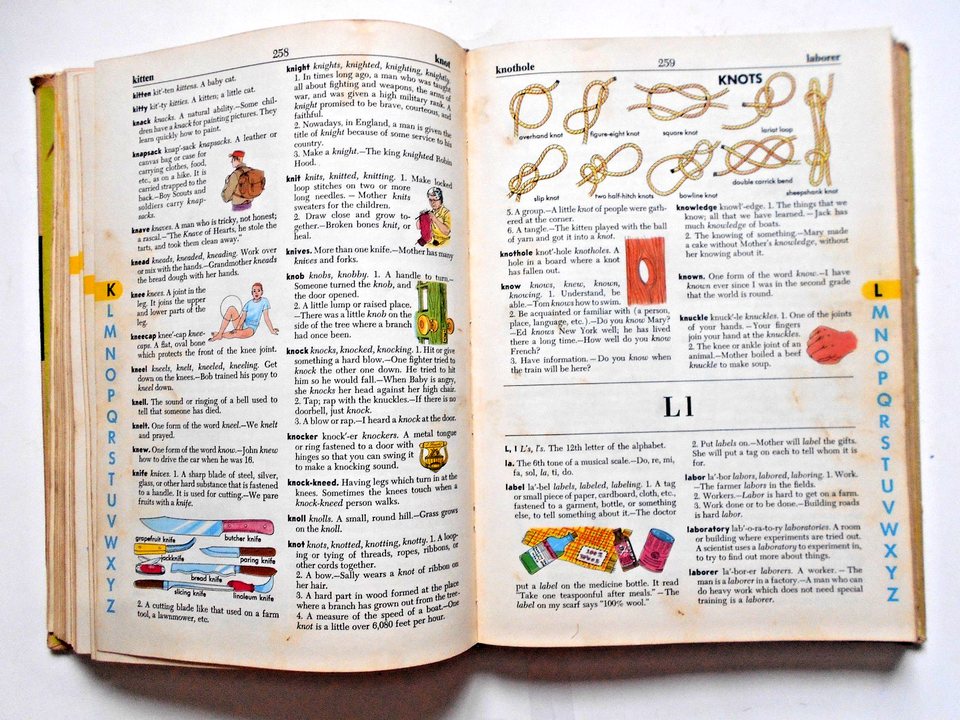 kitten
258
knot
kitten kit'-ten kittens. A baby cat.
kitty kit'-ty kitties. A kitten; a little cat.
knack knacks. A natural ability.—Some chil-
dren have a knack for painting pictures. They
learn quickly how to paint.
knapsack knap'-sack knapsacks. A leather or
canvas bag or case for
carrying clothes, food,
etc., as on a hike. It is
carried strapped to the
back.—Boy Scouts and
soldiers carry knap-
sacks.
knave knaves. A man who is tricky, not honest;
a rascal.—"The Knave of Hearts, he stole the
tarts, and took them clean away."
knead kneads, kneaded, kneading. Work over
or mix with the hands.—Grandmother kneads
the bread dough with her hands.
knee knees. A joint in the
leg. It joins the upper
and lower parts of the
leg.
kneecap knee'-cap knee-
caps. A flat, oval bone
which protects the front of the knee joint.
kneel kneels, knelt, kneeled, kneeling. Get
down on the knees.—Bob trained his pony to
kneel down.
knell. The sound or ringing of a bell used to
tell that someone has died.
knelt. One form of the word kneel.—We knelt
and prayed.
knew. One form of the word know.—John knew
how to drive the car when he was 16.
knife knives. 1. A sharp blade of steel, silver,
glass, or other hard substance that is fastened
to a handle. It is used for cutting.—We pare
fruits with a knife.
grapefruit knife
butcher knife
jackknife
paring knife
bread knife
slicing knife
linoleum knife
2. A cutting blade like that used on a farm
tool, a lawnmower, etc.
knight knights, knighted, knighting, knightly.
1. In times long ago, a man who was taught
all about fighting and weapons, the arms of
war, and was given a high military rank. A
knight promised to be brave, courteous, and
faithful.
2. Nowadays, in England, a man is given the
title of knight because of some service to his
country.
3. Make a knight.—The king knighted Robin
Hood.
knit knits, knitted, knitting. 1. Make locked
loop stitches on two or more
long needles. — Mother knits
sweaters for the children.
2. Draw close and grow to-
gether.—Broken bones knit, or
heal.
knives. More than one knife.—Mother has many
knives and forks.
knob knobs, knobby. 1. A handle to turn.—
Someone turned the knob, and
the door opened.
2. A little lump or raised place.
—There was a little knob on the
side of the tree where a branch
had once been.
knock knocks, knocked, knocking. 1. Hit or give
something a hard blow.—One fighter tried to
knock the other one down. He tried to hit
him so he would fall.—When Baby is angry,
she knocks her head against her high chair.
2. Tap; rap with the knuckles.—If there is no
doorbell, just knock.
3. A blow or rap.—I heard a knock at the door.
knocker knock'-er knockers. A metal tongue
or ring fastened to a door with
hinges so that you can swing it
to make a knocking sound.
knock-kneed. Having legs which turn in at the
knees. Sometimes the knees touch when a
knock-kneed person walks.
knoll knolls. A small, round hill.—Grass grows
on the knoll.
knot knots, knotted, knotting, knotty. 1. A loop-
ing or tying of threads, ropes, ribbons, or
other cords together.
2. A bow.—Sally wears a knot of ribbon on
her hair.
3. A hard part in wood formed at the place
where a branch has grown out from the tree.
4. A measure of the speed of a boat.—One
knot is a little over 6,080 feet per hour.
K
L
M
N
O
P
Q
R
S
T
U
V
W
X
Y
Z
knothole
259
laborer
KNOTS
overhand knot
figure-eight knot
square knot
lariat loop
slip knot
two half-hitch knots
bowline knot
double carrick bend
sheepshank knot
5. A group.—A little knot of people were gath-
ered at the corner.
6. A tangle.—The kitten played with the ball
of yarn and got it into a knot.
knothole knot'-hole knotholes. A
hole in a board where a knot
has fallen out.
know knows, knew, known,
knowing. 1. Understand, be
able.—Tom knows how to swim.
2. Be acquainted or familiar with (a person,
place, language, etc.).—Do you know Mary?
—Ed knows New York well; he has lived
there a long time.—How well do you know
French?
3. Have information. — Do you know when
the train will be here?
knowledge knowl'-edge. 1. The things that we
know; all that we have learned. — Jack has
much knowledge of boats.
2. The knowing of something.—Mary made
a cake without Mother's knowledge, without
her knowing about it.
known. One form of the word know.—I have
known ever since I was in the second grade
that the world is round.
knuckle knuck'-le knuckles. 1. One of the joints
of your hands. — Your fingers
join your hand at the knuckles.
2. The knee or ankle joint of an
animal.—Mother boiled a beef
knuckle to make soup.
L l
L, l L's, l's. The 12th letter of the alphabet.
la. The 6th tone of a musical scale.—Do, re, mi,
fa, sol, la, ti, do.
label la'-bel labels, labeled, labeling. 1. A tag
or small piece of paper, cardboard, cloth, etc.,
fastened to a garment, bottle, or something
else, to tell something about it.—The doctor
100%
WOOL
put a label on the medicine bottle. It read
"Take one teaspoonful after meals." — The
label on my scarf says "100% wool."
2. Put labels on.—Mother will label the gifts.
She will put a tag on each to tell whom it is
for.
labor la'-bor labors, labored, laboring. 1. Work.
—The farmer labors in the fields.
2. Workers.—Labor is hard to get on a farm.
3. Work done or to be done.—Building roads
is hard labor.
laboratory lab'-o-ra-to-ry laboratories. A room
or building where experiments are tried out.
A scientist uses a laboratory to experiment in,
to try to find out more about things.
laborer la'-bor-er laborers. A worker. — The
man is a laborer in a factory.—A man who can
do heavy work which does not need special
training is a laborer.
L
M
N
O
P
Q
R
S
T
U
V
W
X
Y
Z